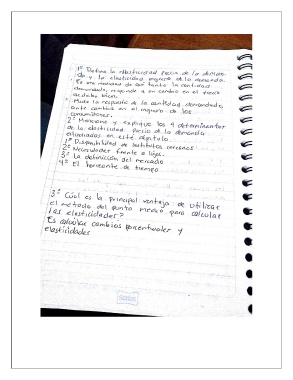 1º Defina la elasticidad precio de la deman-
da y la elasticidad ingreso de la demanda.
Es una medida de qué tanto la cantidad
demandada, responde a un cambio en el precio
de dicho bien.
Mide la respuesta de la cantidad demandada,
ante cambios en el ingreso de los
consumidores.
2º Mencione y explique los 4 determinantes
de la elasticidad precio de la demanda
en este capítulo
1º Disponibilidad de sustitutos cercanos
2º Necesidades frente a lujos.
3º La definición del mercado
4º El horizonte de tiempo
3º Cúal es la principal ventaja de utilizar
el método del punto medio para calcular
las elasticidades?
Es calcular cambios porcentuales y
elasticidades